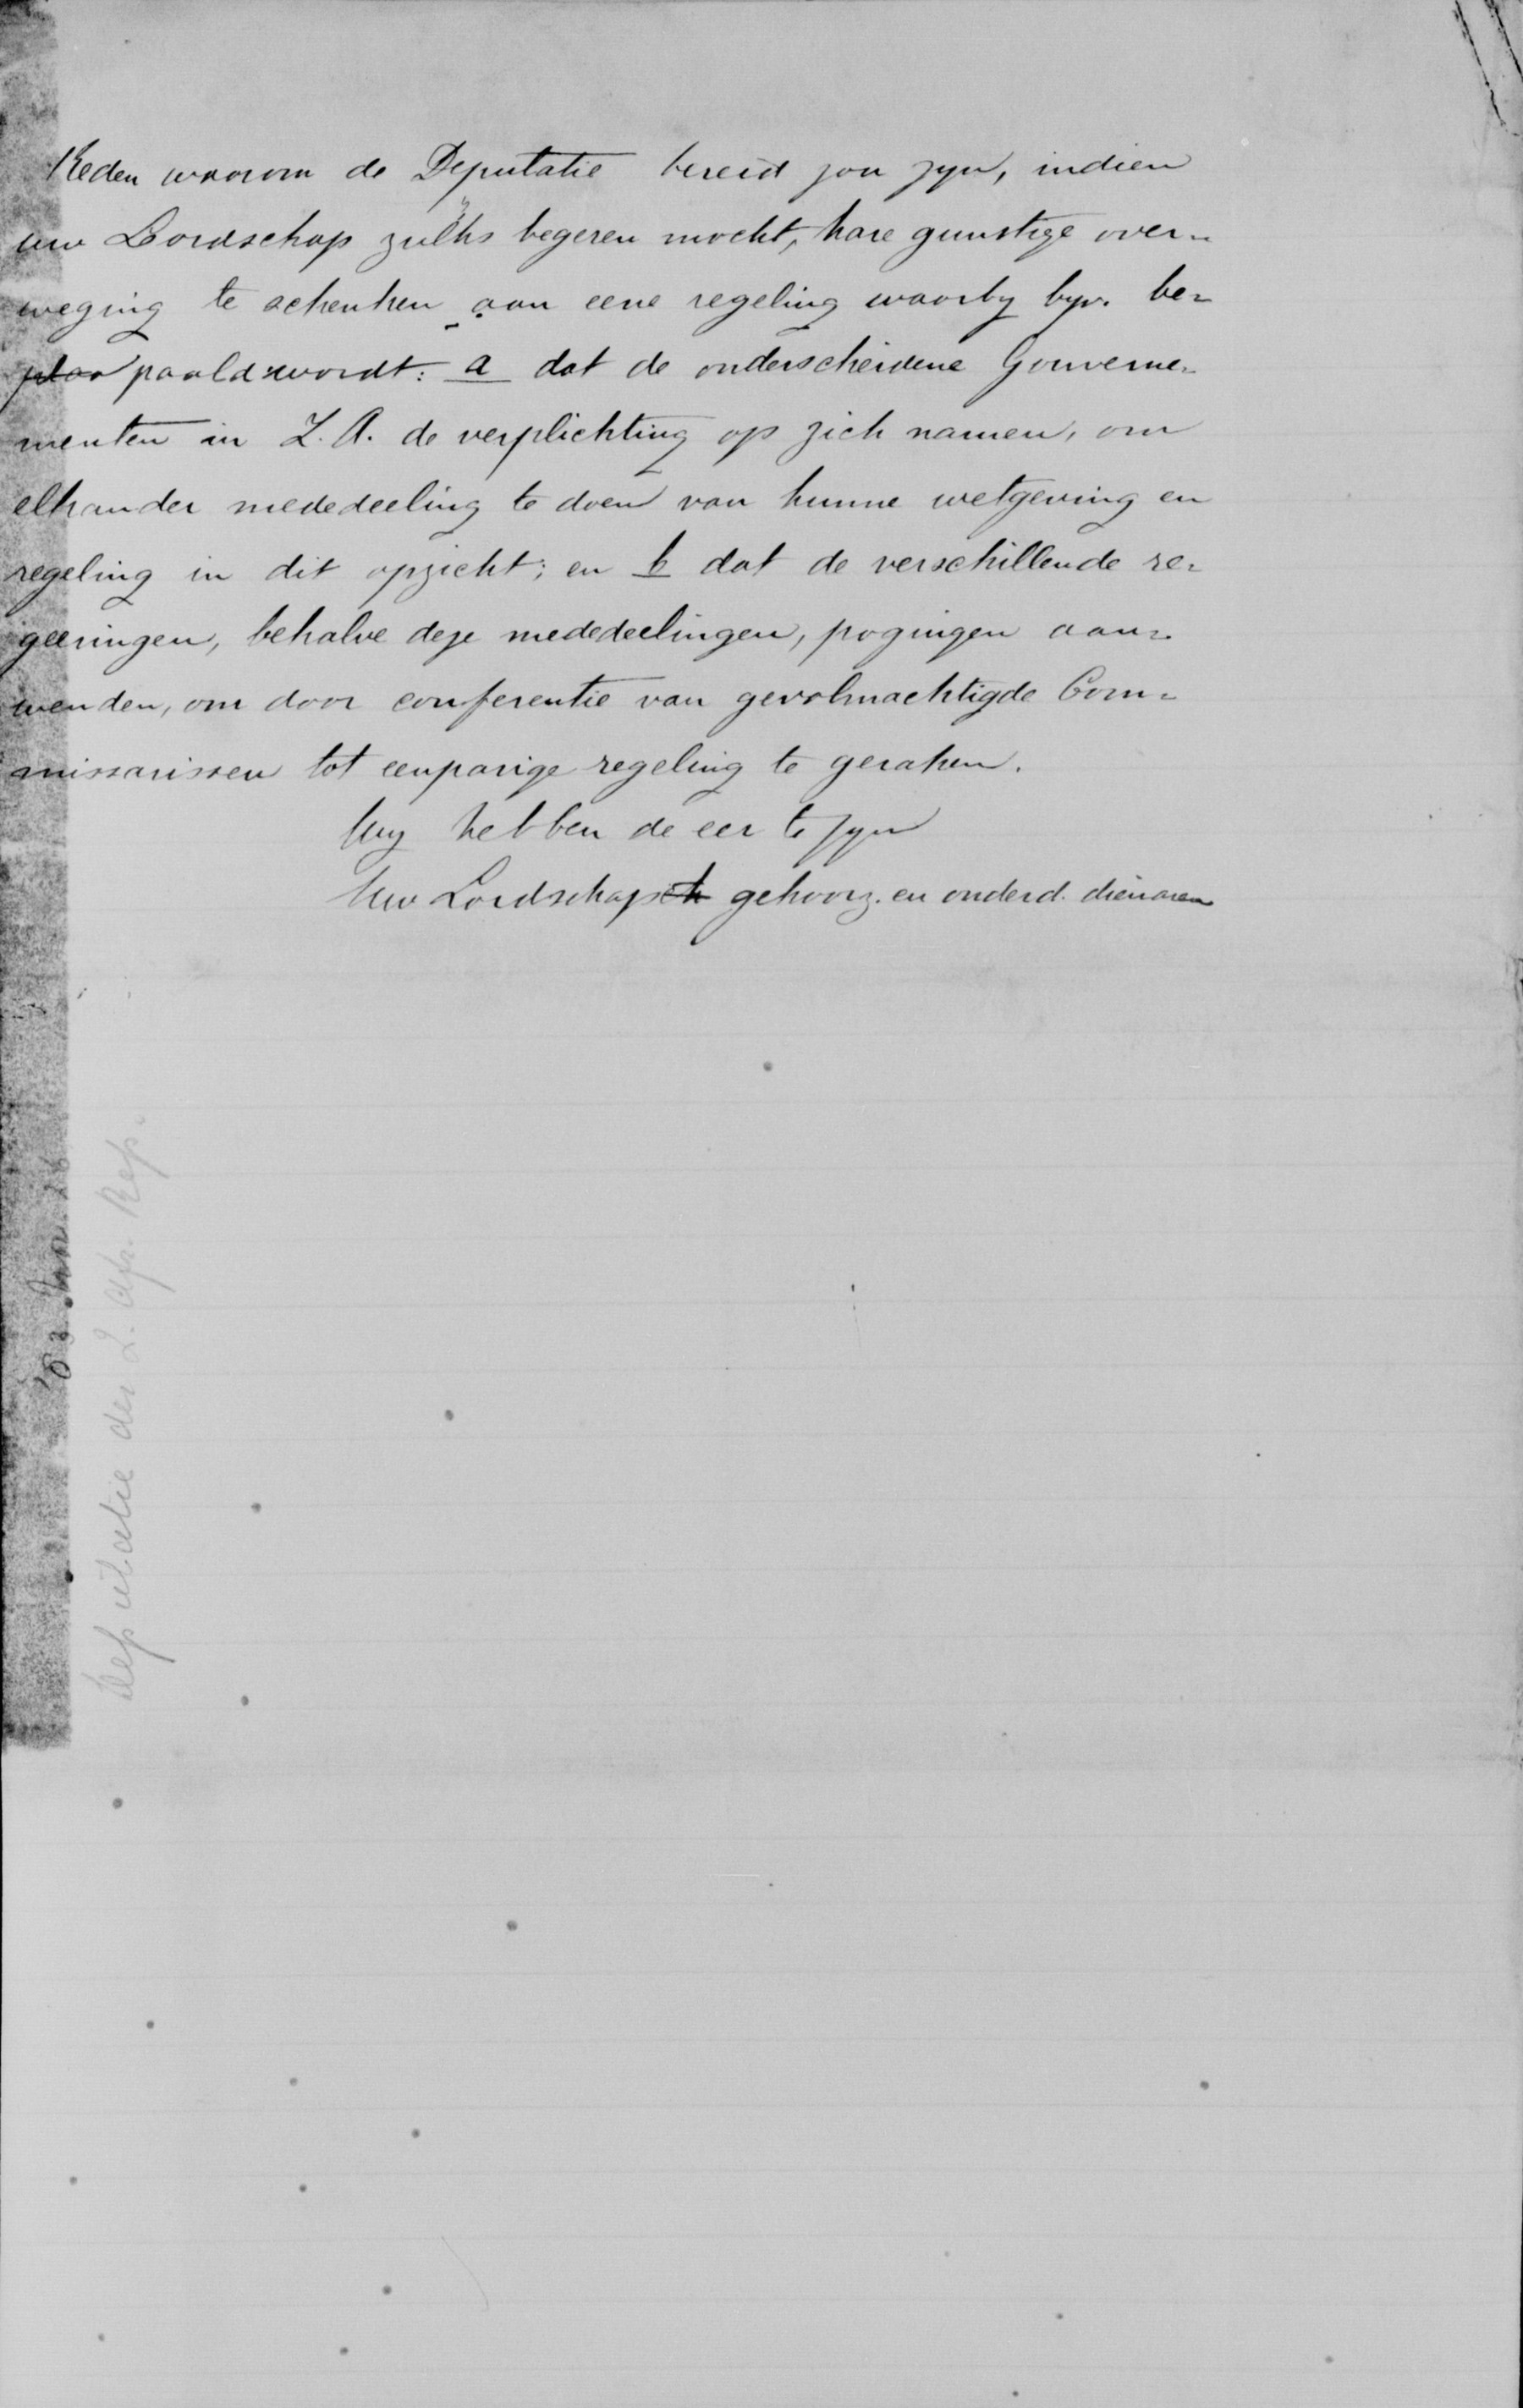 Reden waarom de Deputatie bereid zou zyn, indien
uw Lordschap zulks begeren mocht, hare gunstige over-
weging te schenken aan eene regeling waarby byv. be-
plaa paald wordt: a dat de onderscheidene Gouverne-
menten in Z. A. de verplichting op zich namen, om
elkander mededeeling te doen van hunne wetgeving en
regeling in dit opzicht; en b dat de verschillende re-
geeringen, behalve deze mededeelingen, pogingen aan-
wenden, om door conferentie van gevolmachtigde Com-
missarissen tot eenparige regeling te geraken.
Wy hebben de eer te zyn
Uw Lordschaps gehoorz. en onderd. dienaren
Deputatie der Z. Afr. Rep.